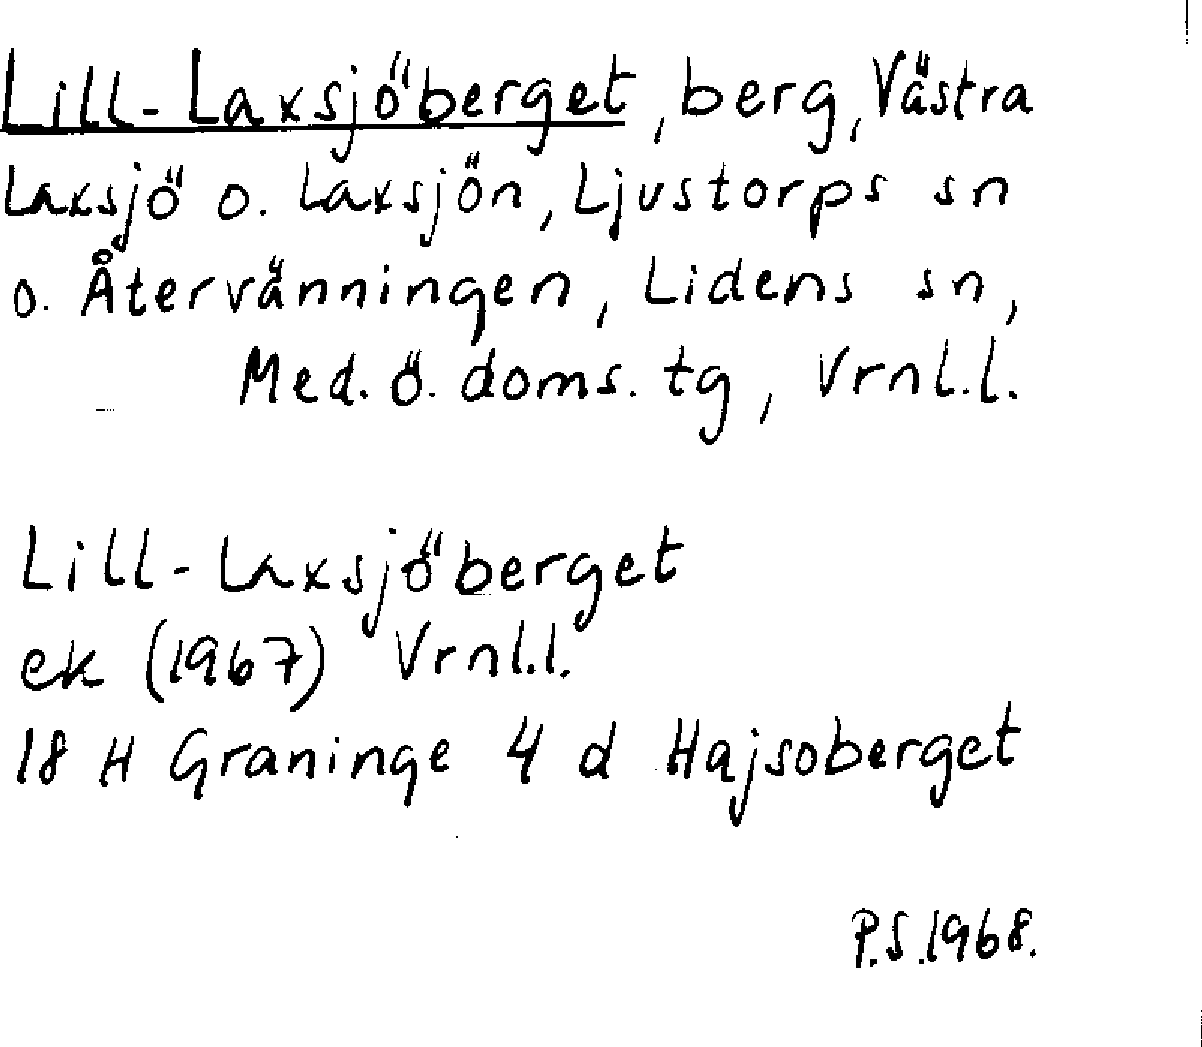 Lill-Laxsjöberget, berg, Västra
Laxsjö o. Laxsjön, Ljustorps sn
o. Återvänningen, Lidens sn,
Med. ö. doms. tg, Vrnl.l.
Lill-Laxsjöberget
ek (1967) Vrnl.l.
18 H Graninge 4 d Hajsoberget
P.S.1968.